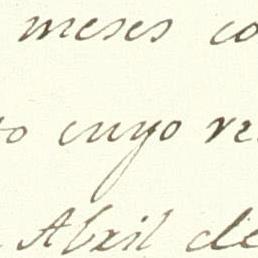 meses co
to cuyo re
Abril de